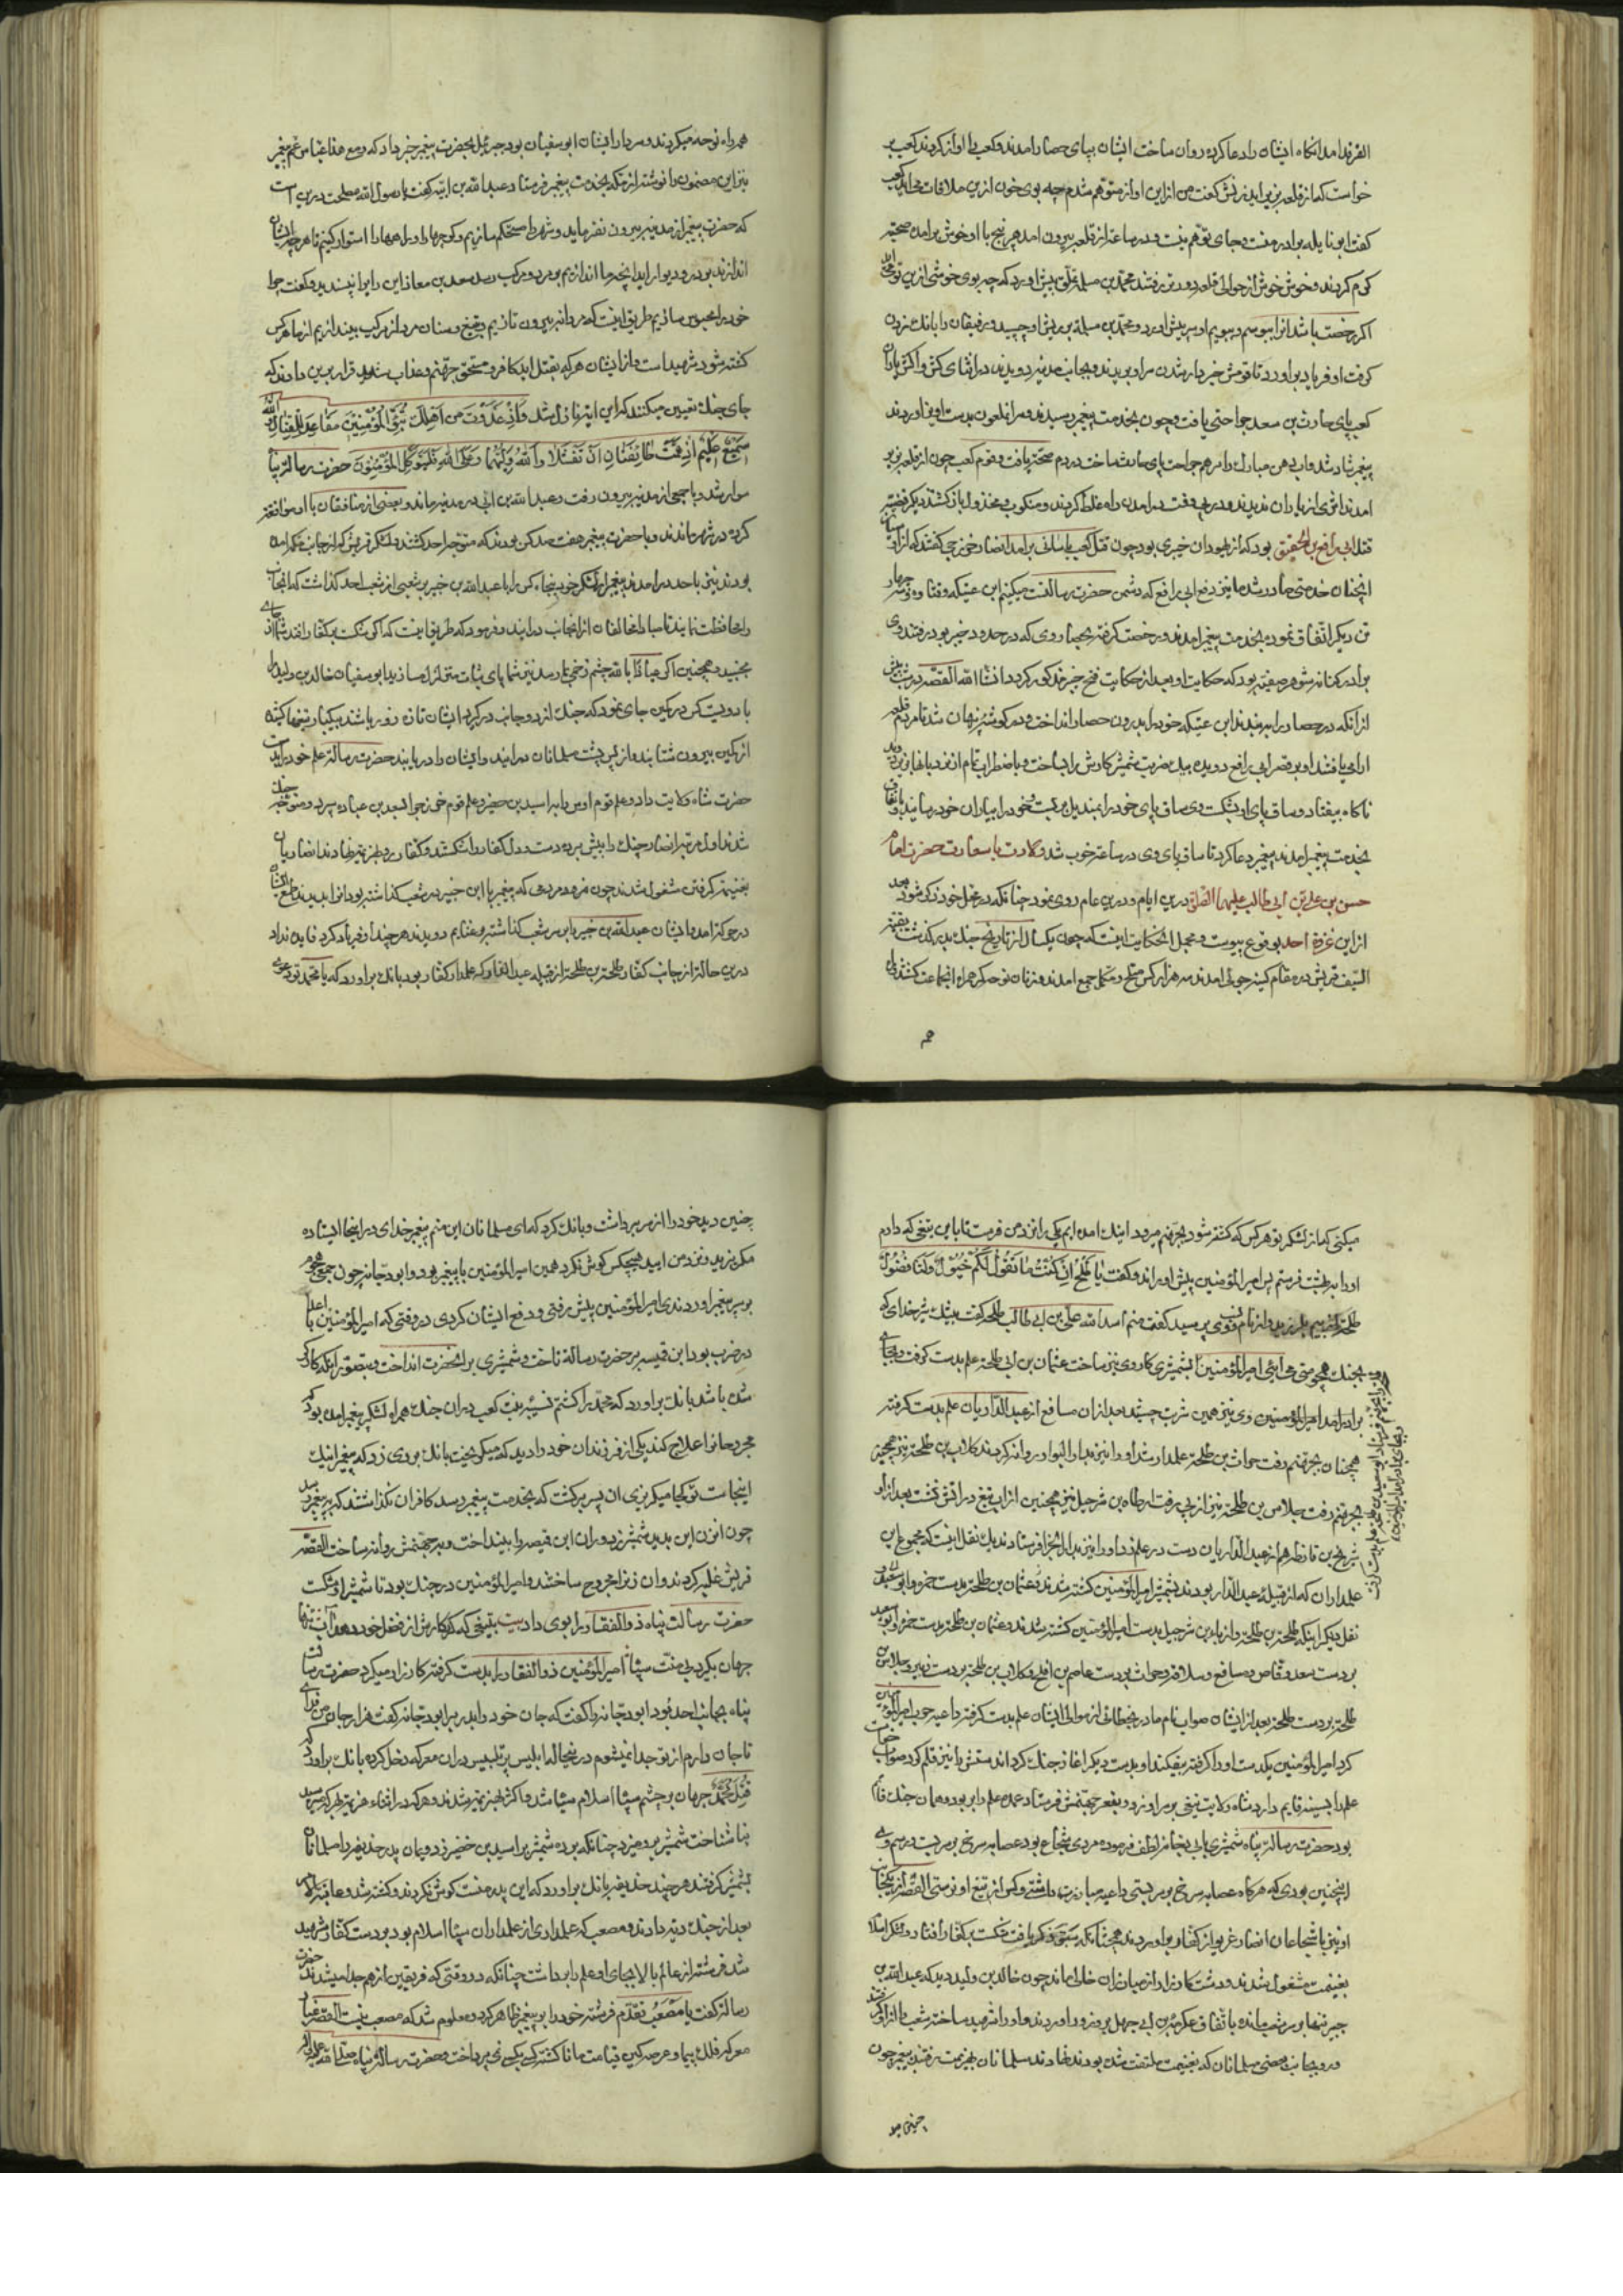 الغرقد امد انکاه ایشان را دعا کرده روان ساخت ایشان بپای حصار امدند و کعب را اواز کردند کعب
خواست که از قلعه بزیر اید زنش کفت من از این اواز متوهم شدم چه بوی خون ازین ملاقات می اید کعب
کفت ابو نایله برادر منست و جای توهم نیست و در ساعت از قلعه بیرون امد هر پنج با او خوش برامده صحبت
کرم کردند و خوش خوش از حوالی قلعه دورتر رفتند محمد بن مسلمه تملق پیش اورد که چه بوی خوشی ازین تو می اید
اکر رخصت باشد انرا ببوسم و ببویم او سر پیش اورد و محمد بن مسلمه بریش او چسپید و رفیقان را بانک زد
کرفت او فریاد براورد تا قومش خبردار شدن سر او بریدند و بجانب مدینه دویدند در اثنای کش واکش
کعب پای حارث بن سعد جراحتی یافت و چون بخدمت پیغمبر رسیدند و سر ان ملعون بدست اویز اوردند
پیغمبر شاد شد و اب دهن مبارک را مرهم جراحت پای حارث ساخت در دم صحت یافت و قوم کعب چون از قلعه بزیر
امدند اثری از یاران ندیدند و در پی رفت درامدن راه غلط کردند و منکوب و مخذول باز کشتند دیکر قضیه
قتل ابی رافع بن الحقیق بود که از یهودان خیبری بود چون قتل کعب باسانی برامد انصار خزرجی کفتند که از
اینچنان خدمتی صادر شد ما نیز دفع ابی رافع که دشمن حضرت رسالتست میکنیم ابن عتیکه و قتاده و سه چهار
تن دیکر اتفاق نموده بخدمت پیغمبر امدند و رخصت کرفته بحصار وی که در حدود خیبر بود رفتند وی
برادر کنانه شوهر صفیه بود که حکایت او بعد از حکایت فتح خیبر مذکور کردد انشاالله القصه در شب پیش
از انکه در حصار را ببندند ابن عتیکه خود را بدرون حصار انداخت و در کوشه پنهان شد تا مردم قلعه
ارامی یافتند او بر قصر ابی رافع دویده بیک ضربت شمشیر کارش را بساخت و باضطراب تمام از نردبانها بزیر دوید
ناکاه بیفتاد و ساق پای او بشکست وی ساق پای خود را بمندیل بربست و خود را بیاران خود رسانید
بخدمت پیغمبر امدند پیغمبر دعا کرد تا ساق پای وی در ساعت خوب شد ولادت با سعادت حضرت امام
حسن بن علی بن ابی طالب علیهما الصلوة درین ایام و درین عام روی نمود چنانکه در محل خود ذکر شود بعد
از این غزوه احد بوقوع پیوست و مجمل انحکایت اینست که چون یکسال از تاریخ جنک بدر کذشت بقیة
السیف قریش در مقام کینه جوئی امدند سه هزار کس مسلح و مکمل جمع امدند و زنان نوحه کر همراه انجماعت کشتند
هم
همراه توجه میکردند و سردار ایشان ابوسفیان بود جبرئیل بحضرت پیغمبر خبر داد که و مع هذا عباس عم پیغمبر
نیز این مضمون را نوشته از مکه بخدمت پیغمبر فرستاد عبدالله بن ابیّ کفت یا رسول الله مصلحت درین است
که حضرت پیغمبر از مدینه بیرون نفرماید و شهر را مستحکم سازیم و کوچها را و راهها را استوار کنیم تا هرچه ایشان
اندازند بر در و دیوار اید انچه ما اندازیم بر مرد و مرکب رسد سعد بن معاذ این رای را نپسندید و کفت چرا
خود را محبوس سازیم طریق اینست که مردانه بیرون تازیم و بتیغ و سنان مرد از مرکب بیندازیم از ما هر کس
کشته شود شهید است و از ایشان هر که بقتل اید کافر و مستحق جهنم و عذاب شدید قرار برین دادند که
جای جنک تعیین میکنند که این ایه نازل شد وَاِذْ غَدَوْتَ مِنْ اَهْلِكَ تُبَوِّئُ الْمُؤْمِنِينَ مَقَاعِدَ لِلْقِتَالِ وَاللهُ
سَمِيعٌ عَلِيمٌ اِذْ هَمَّتْ طَائِفَتَانِ اَنْ تَفْشَلَا وَاللهُ وَلِيُّهُمَا وَعَلَى اللهِ فَلْيَتَوَكَّلِ الْمُؤْمِنُونَ حضرت رسالت پناه
سوار شد و با جمعی از مدینه بیرون رفت و عبدالله بن ابی در مدینه ماند و بعضی از منافقان با او موافقت
کرده در شهر ماندند و با حضرت پیغمبر هفت صد کس بودند که متوجه احد کشتند و لشکر قریش که از جانب مکه امده
بودند نیز باحد درامدند پیغمبر از لشکر خود پنجاه کس را با عبدالله بن جبیر بر شعبی از شعب احد کذاشت که انجا
را محافظت نمایند تا مبادا مخالفان از انجانب درایند و فرمود که طریق اینست که اکر شکست بر کفار افتد شما از جای
مجنبید و همچنین اکر عیاذا بالله چشم زخمی بما رسد نیز شما پای ثبات متزلزل مسازید ابوسفیان خالد بن ولید را
با دویست کس در کمین جای نمود که چون جنک از دو جانب درکیرد ایشان تازه زور باشند بیکبار تیغها کشیده
از کمین بیرون شتابند و از پس پشت مسلمانان درایند و ایشان را دریابند حضرت رسالت علم خود را بدست
حضرت شاه ولایت داد و علم قوم اوس را به اسید بن حضیر و علم قوم خزرج را بسعد بن عباده سپرد و متوجه جنک
شدند اول مرتبه انصار جنک را پیش برده دست و دل کفار را شکستند و کفار رو بهزیمت نهادند انصار
بغنیمت کرفتن مشغول شدند چون مردمی که پیغمبر با ابن جبیر در شعب کذاشته بود انرا بدیدند طمع ایشان
در حرکت امد و ایشان عبدالله بن جبیر را بر سر شعب کذاشته و بغنایم دویدند هر چند او فریاد کرد فایده نداد
درین حالت از جانب کفار طلحة بن طلحه از قبیله عبدالدار که علمدار کفار بود بانک براورد که یا محمد تو دعوی
میکنی که از لشکر تو هر کس که کشته شود بجهنم میرود اینک امده ایم یکی را نزد من فرست تا باین تیغی که دارم
او را بهشت فرستم پس امیرالمؤمنین پیش او راند و کفت یَا طَلْحُ اِنْ کُنْتَ مَا تَقُولُ لَکُمْ خُیُولٌ وَلَنَا نُصُولٌ
طلحه از بیم بلرزید و از نام و نسب وی پرسید کفت منم اسدالله علی بن ابی طالب طلحه کفت بیشک شیر خدای که
بجنک همچو منی می ائی امیرالمؤمنین بشمشیری کار وی نیز ساخت عثمان بن ابی طلحه علم بدست کرفت و بجای
برادر امد امیرالمؤمنین وی نیز همین شربت چشید بعد از ان مسافع از عبدالداریان علم بدست کرفته
همچنان بجهنم رفت حراث بن طلحه علمدار شد او را نیز بدارالبوار روانه کردند کلاب بن طلحه نیز همچنین
بجهنم رفت جلاس بن طلحه نیز از پی رفت ارطاه بن شرحبیل نیز همچنین از اب تیغ در اتش نشست بعد از او
شریح بن قارظ هم از عبدالداریان دست در علم زد او را نیز بدارالجزا فرستادند یک نقل اینست که مجموع این
علمداران که از قبیله عبدالدار بودند بشمشیر امیرالمؤمنین کشته شدند و عثمان بن طلحه بدست حمزه و ابو سعید
نقل دیکر اینکه طلحة بن طلحه و ارطاه بن شرحبیل بدست امیرالمؤمنین کشته شدند و عثمان بن طلحه بدست حمزه و ابو سعید
بر دست سعد وقاص و مسافع و سلافه و حراث بر دست عاصم بن افلح و کلاب بن طلحه بر دست زبیر و جلاس
طلحه بر دست طلحه بعد از ایشان صواب نام مادر بخطائی از موالی ایشان علم بدست کرفته داعیه حرب امیرالمؤمنین
کرد امیرالمؤمنین یکدست او را کرفته بیفکند او بدست دیکر اغاز جنک کرد اند ستش را نیز قلم کرد صواب
علم را بسینه قایم دارد شاه ولایت تیغی بر سر او زد و بقعر جهنمش فرستاد عمده علم دار بود و همان جنک
بود حضرت رسالت پناه شمشیری بابی دجانه لطف فرموده مردی شجاع بود عصابه سرخ بر سر بست در رسم وی
اینچنین بودی که هرکاه عصابه سرخ بر سر بستی داعیه مبارزت داشتی و کس از تیغ او نرستی القصه از یکجانب
او نیز با شجاعان انصار غریو از کفار براوردند همچنانکه سبق ذکر یافت شکست بر کفار افتاد و لشکر اسلام
بغنیمت مشغول شدند و دشت کارزار از مبارزان خالی ماند چون خالد بن ولید دید که عبدالله بن
جبیر تنها بر سر شعب مانده باتفاق عکرمة بن ابی جهل بر وی زور اوردند و او را شهید ساخته شعب را از او کرفتند
و رو بجانب بعضی مسلمانان که بغنیمت ملتفت شده بودند نهادند مسلمانان بهزیمت رفتند پیغمبر چون
چنین دید
چنین دید خود را از سر برداشت و بانک کرد که ای مسلمانان این منم پیغمبر خدای در اینجا ایستاده
مکریزید و نزد من ایید هیچکس کوش نکرد همین امیرالمؤمنین با پیغمبر بود و ابو دجانه چون جمعی هجوم
بر سر پیغمبر اوردندی امیرالمؤمنین پیش رفتی و دفع ایشان کردی در وقتی که امیرالمؤمنین با اعدا
در ضرب بود ابن قمیه بر حضرت رسالت تاخت و شمشیری بر انحضرت انداخت و بتصور اینکه کارکر
شده باشد بانک براورد که محمد را کشتم نسیبه بنت کعب در ان جنک همراه لشکر پیغمبر امده بود که
مجروحانرا علاج کند یکی از فرزندان خود را دید که میکریخت بانک بر وی زد که پیغمبر اینک
اینجاست تو کجا میکریزی ان پسر برکشت که بخدمت پیغمبر رسد کافران نکذاشتند که به پیغمبر رسد
چون ان زن این بدید شمشیر زد و ران ابن قمیه را بینداخت و بجهنمش روانه ساخت القصه
قریش غلبه کردند و ان زن را مجروح ساختند و امیرالمؤمنین در جنک بود تا شمشیر او شکست
حضرت رسالت پناه ذوالفقار را بوی داد بیت بتیغی که کرد کارش از فضل خود دهد انت تنها
جهان بکیرد بی منت سپاه امیرالمؤمنین ذوالفقار را بدست کرفته کارزار میکرد حضرت رسالت
پناه بجانب احد بود ابو دجانه را کفت که جان خود را بدر بر ابو دجانه کفت هزار جان من فدای
تا جان دارم از تو جدا نمیشوم در ینحالت ابلیس پر تلبیس در ان معرکه دخل کرده بانک براورد که
قُتِلَ مُحَمَّدٌ جهان بر چشم سپاه اسلام سیاه شد و اکثر بهزیمت شدند و هر که در اثناء هزیمت بهر که میرسید
ناشناخت شمشیر بر وی میزد چنانکه بر ده شمشیر بر اسید بن خضیر زد و یمان پدر حذیفه را مسلمانان
بشمشیر کرفتند هر چند حذیفه بانک براورد که این پدر منست کوش نکردند و کشته شد و عاقبت
بعد از جنک دیه دادند و مصعب که علمداری از علمداران سپاه اسلام بود بر دست کفار شهید
شد فرشته از عالم بالا بجای او علم را برداشت چنانکه در وقتی که فریقین از هم جدا میشدند حضرت
رسالت کفت یَا مُصْعَبُ تَقَدَّمْ فرشته خود را بر پیغمبر ظاهر کرد و معلوم شد که مصعب نیست القصه غبار
معرکه فلک پیما و عرصه کین قیامت مانا کشته کسی بکسی نمی پرداخت و حضرت رسالت پناه صلی الله علیه واله